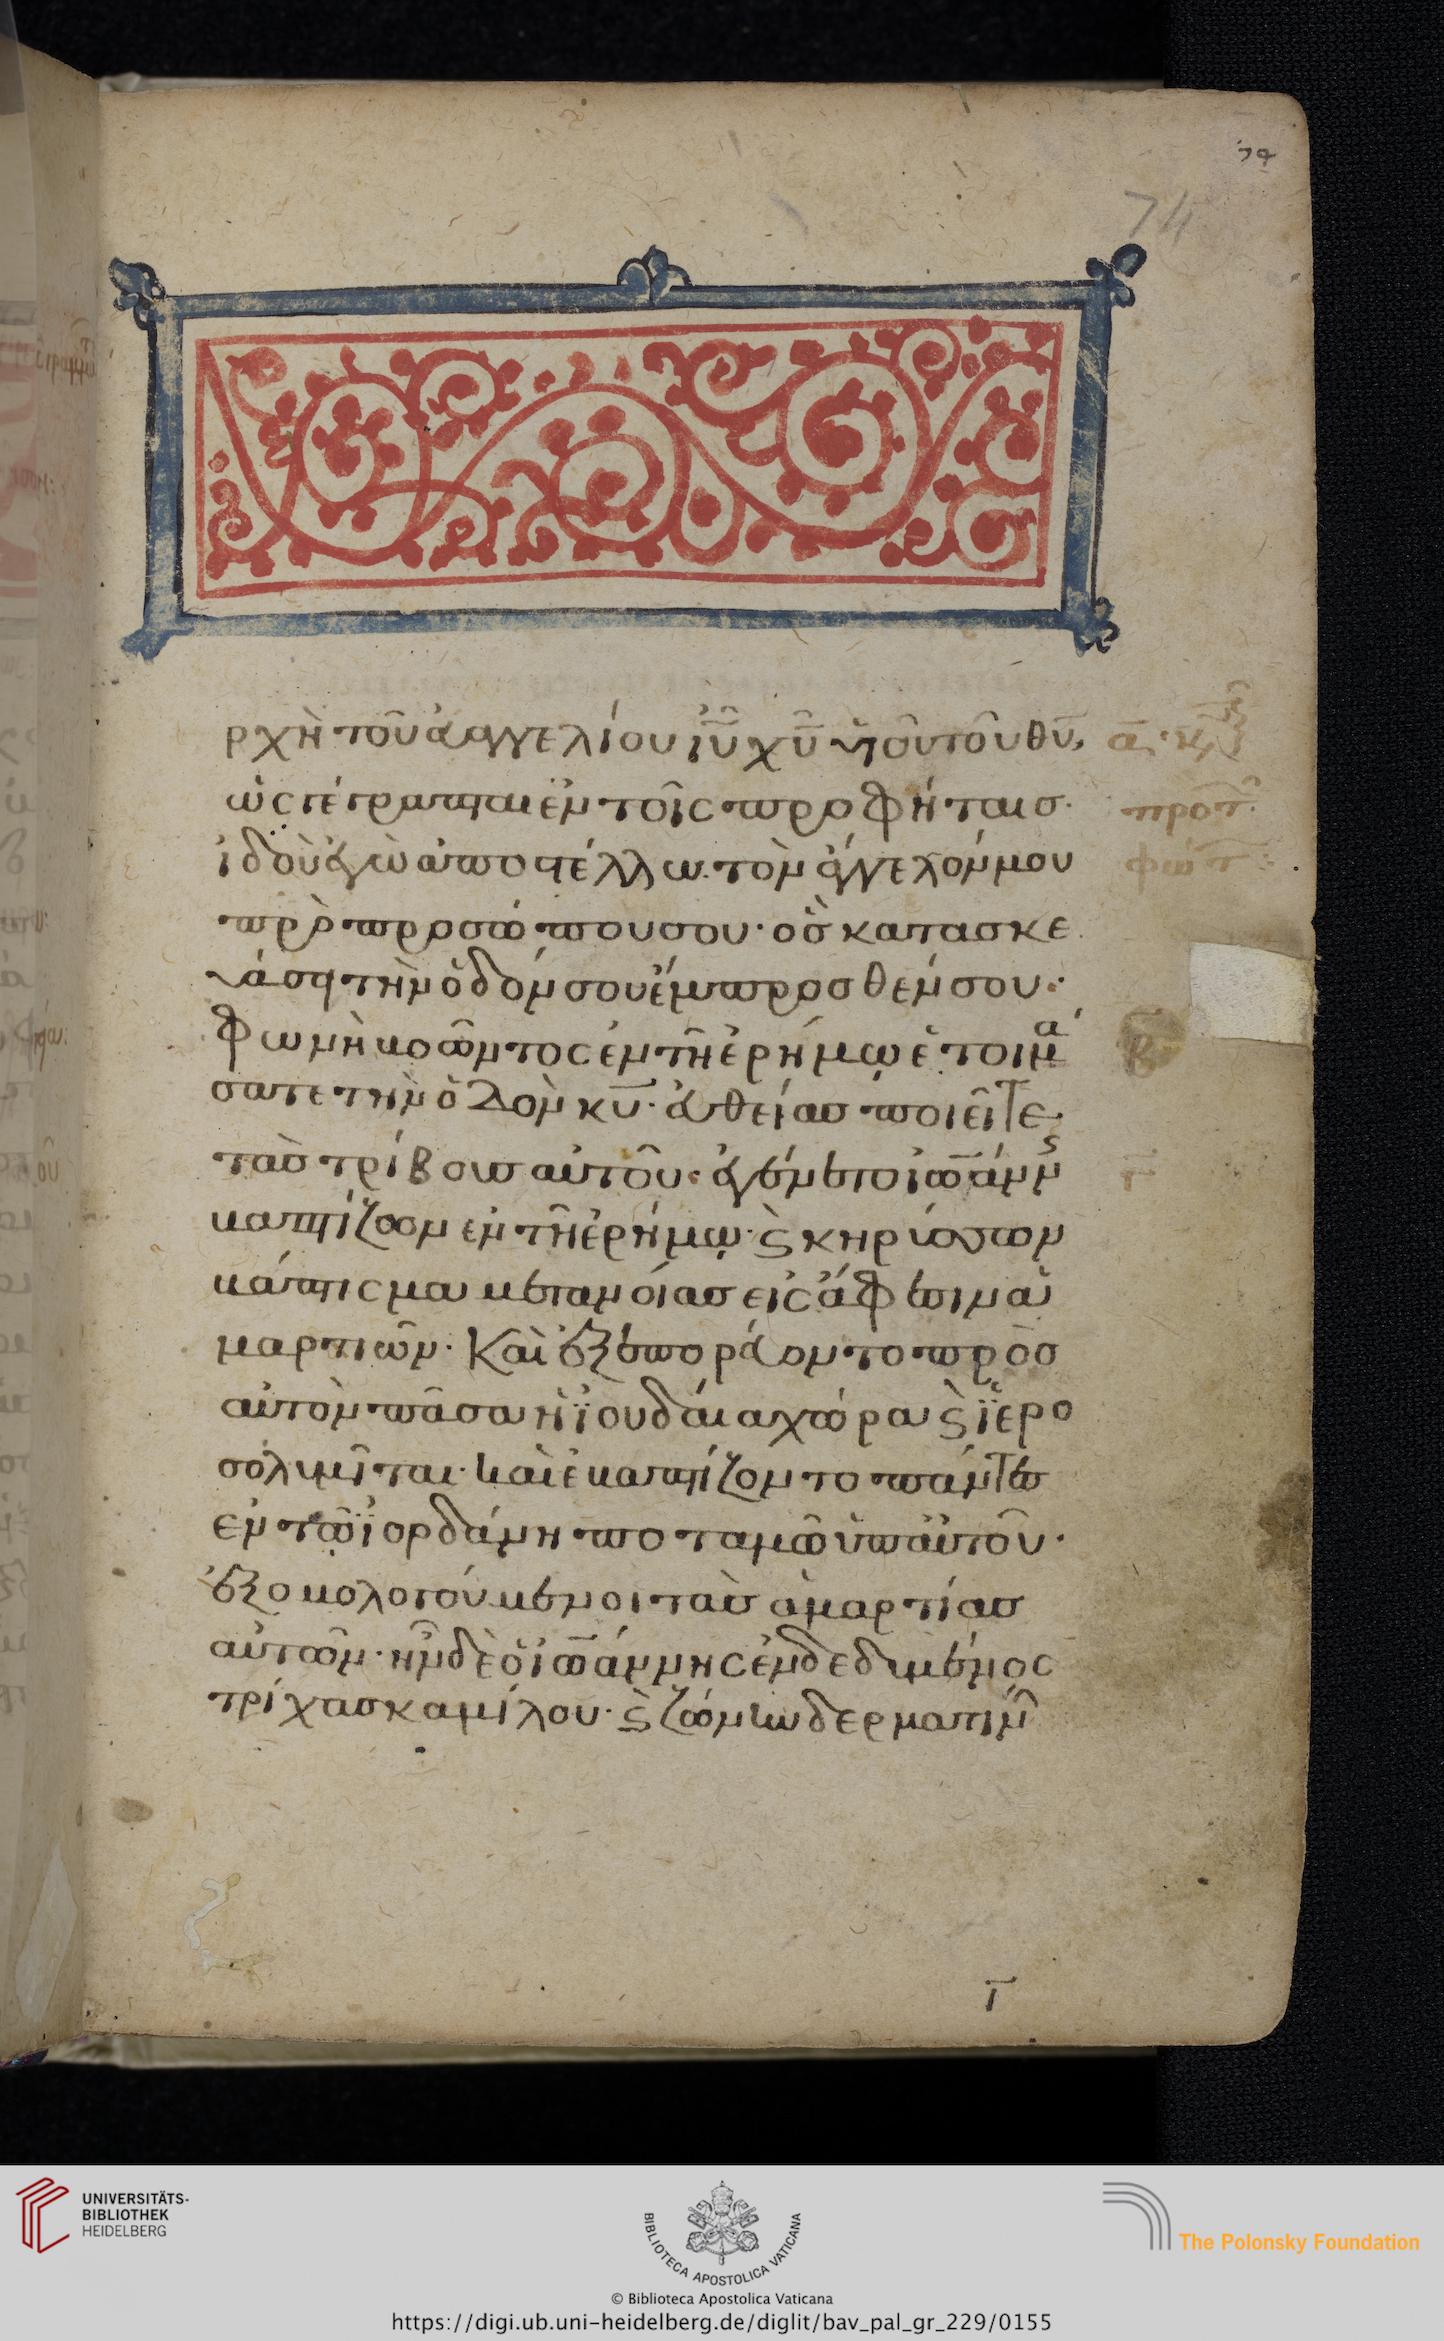 74
74
ρχὴ τοῦ εὐαγγελίου ἰῦ χῦ υἱοῦ τοῦ θῦ,
ὡς γέγραπται ἐν τοῖς προφήταις·
ἰδοὺ ἐγὼ ἀποστέλλω τὸν ἄγγελόν μου
πρὸ προσώπου σου· ὃς κατασκε
υάση τὴν ὁδόν σου ἔμπροσθέν σου·
Φωνὴ βοῶντος ἐν τῆ ἐρήμω ἑτοιμά
σατε τὴν ὁδὸν κῡ· εὐθείας ποιεῖτε
τὰς τρίβους αὐτοῦ· ἐγένετο ἰωάννης
βαπτίζων ἐν τῆ ἐρήμω· ϗ κηρύσσων
βάπτισμα μετανοίας εἰς ἄφεσιν ἁ
μαρτιῶν· Καὶ ἐξεπορεύοντο πρὸς
αὐτὸν πᾶσα ἡ ἰουδαία χώρα ϗ ἱερο
σολυμῖται· καὶ ἐβαπτίζοντο πάντες
ἐν τῶ ἰορδάνη ποταμῶ ὑπ αὐτοῦ·
ἐξομολογούμενοι τὰς ἁμαρτίας
αὐτῶν· ἦν δὲ ὁ ἰωάννης ἐνδεδυμένος
τρίχας καμίλου· ϗ ζώνην δερματίνην
α
προ
φώτ
β
γ
γ
UNIVERSITÄTS-
BIBLIOTHEK
HEIDELBERG
BIBLIOTECA APOSTOLICA VATICANA
The Polonsky Foundation
© Biblioteca Apostolica Vaticana
https://digi.ub.uni-heidelberg.de/diglit/bav_pal_gr_229/0155